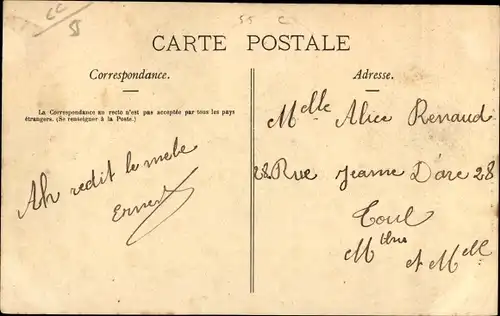 CC
55 C
CARTE POSTALE
Correspondance.
La Correspondance au recto n'est pas acceptée par tous les pays
étrangers. (Se renseigner à la Poste.)
Ah redit le mele
Ernest
Adresse.
Melle Alice Renaud
28 Rue Jeanne D'arc 28
Toul
Mthe
et Mlle